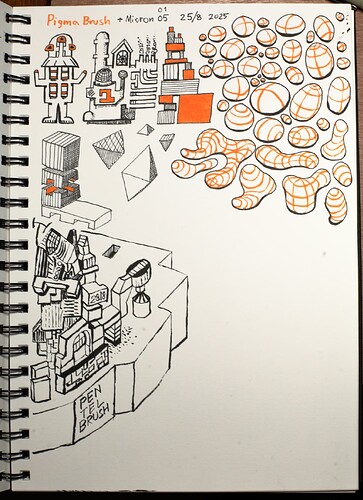 Pigma Brush + Micron 05 01 25/8 2025
PEN
TEL
BRUSH